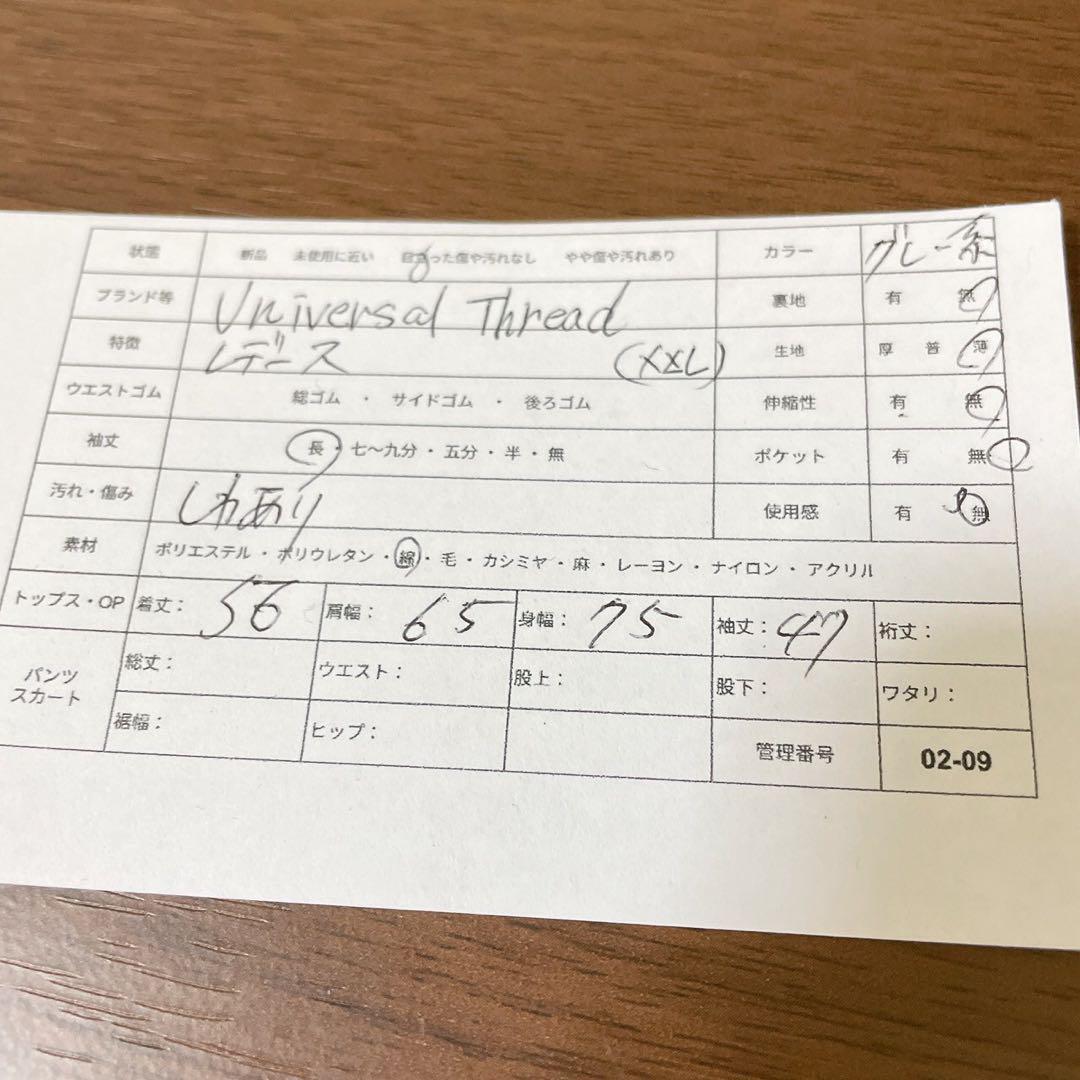 状態 新品 未使用に近い 目立った傷や汚れなし やや傷や汚れあり カラー グレー系
ブランド等 Universal Thread 裏地 有 無
特徴 レディース (XXL) 生地 厚 普 薄
ウエストゴム 総ゴム ・ サイドゴム ・ 後ろゴム 伸縮性 有 無
袖丈 長・七〜九分・五分・半・無 ポケット 有 無
汚れ・傷み しわあり 使用感 有 無
素材 ポリエステル・ポリウレタン・綿・毛・カシミヤ・麻・レーヨン・ナイロン・アクリル
トップス・OP 着丈： 56 肩幅： 65 身幅： 75 袖丈： 47 裄丈：
パンツ スカート 総丈： ウエスト： 股上： 股下： ワタリ：
裾幅： ヒップ： 管理番号 02-09